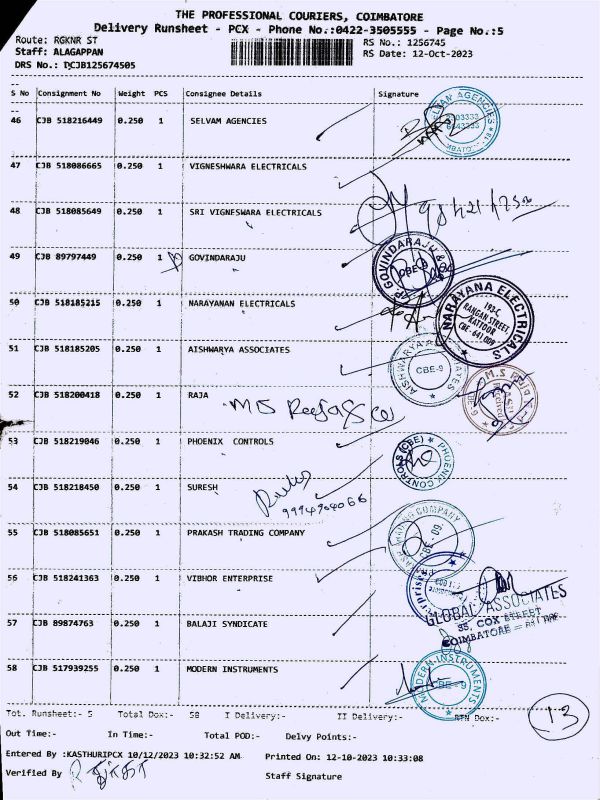 THE PROFESSIONAL COURIERS, COIMBATORE
Delivery Runsheet - PCX - Phone No.:0422-3505555 - Page No.:5
Route: RGKNR ST
RS No.: 1256745
Staff: ALAGAPPAN
RS Date: 12-Oct-2023
DRS No.: DCJB125674505
S No Consignment No Weight PCS Consignee Details Signature
46 CJB 518216449 0.250 1 SELVAM AGENCIES
47 CJB 518086665 0.250 1 VIGNESHWARA ELECTRICALS
48 CJB 518085649 0.250 1 SRI VIGNESWARA ELECTRICALS
49 CJB 89797449 0.250 1 GOVINDARAJU
50 CJB 518185215 0.250 1 NARAYANAN ELECTRICALS
NARAYANA ELECTRICALS
193-C,
RANGAN STREET,
KATTOOR
CBE- 641 009
51 CJB 518185205 0.250 1 AISHWARYA ASSOCIATES
AISHWARYA ASSOCIATES
CBE-9
52 CJB 518200418 0.250 1 RAJA
53 CJB 518219046 0.250 1 PHOENIX CONTROLS
PHOENIX CONTROLS (CBE)
54 CJB 518218450 0.250 1 SURESH
55 CJB 518085651 0.250 1 PRAKASH TRADING COMPANY
CBE-09.
56 CJB 518241363 0.250 1 VIBHOR ENTERPRISE
57 CJB 89874763 0.250 1 BALAJI SYNDICATE
GLOBAL ASSOCIATES
35, COX STREET
COIMBATORE
58 CJB 517939255 0.250 1 MODERN INSTRUMENTS
MODERN INSTRUMENTS
CBE-9
Tot. Runsheet:- 5 Total Dox:- 58 I Delivery:- II Delivery:- RTN Dox:-
13
Out Time:- In Time:- Total POD:- Delvy Points:-
Entered By :KASTHURIPCX 10/12/2023 10:32:52 AM Printed On: 12-10-2023 10:33:08
Verified By
Staff Signature